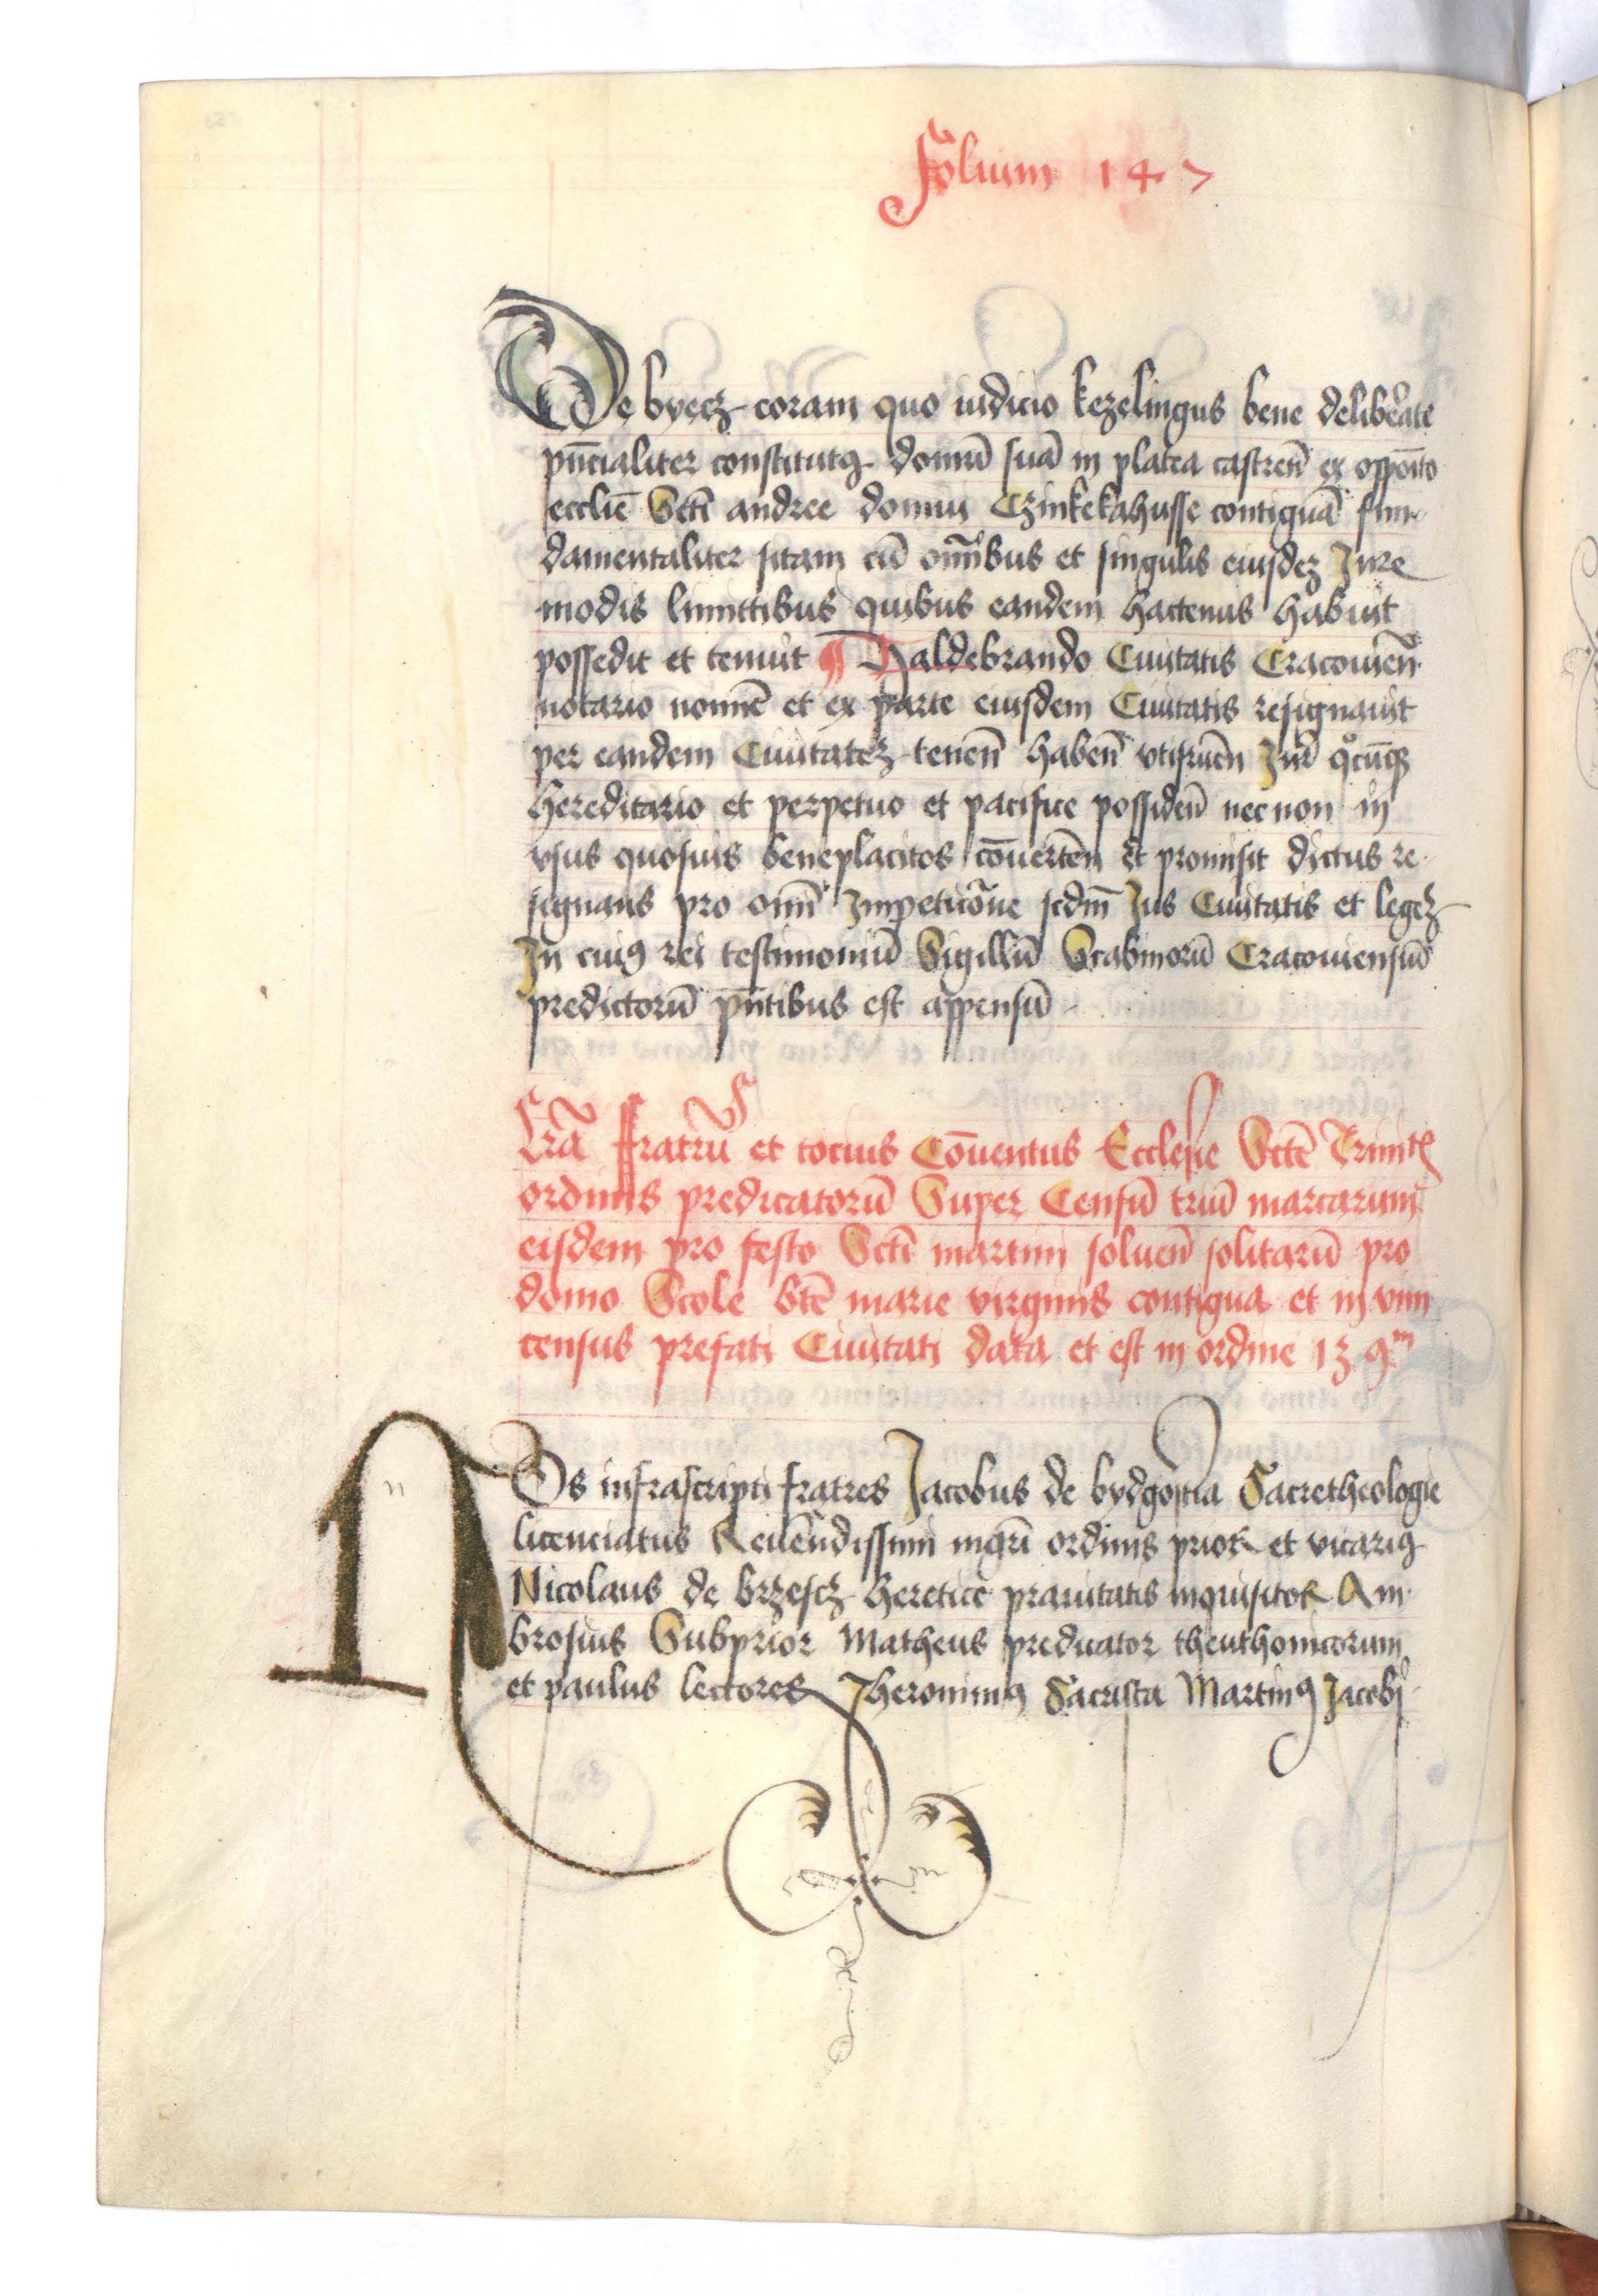 Folium 147
De byecz coram quo iudicio kezelingus bene delib̄ate
pn̄cialiter constitutꝯ domū suā in platea castren̄ ex opposito
eccliē Scti andree domui Czinkekahusse contiguā fun
damentaliter sitam cū om̄ibus et singulis eiusdeꝫ Jure
modis limitibus quibus eandem hactenus habuit
possedit et tenuit ¶ Haldebrando Ciuitatis Cracouien̄
notario nomīe et ex parte eiusdem Ciuitatis resignauit
per eandem Ciuitateꝫ tenen̄ haben̄ vtifruen̄ Jur̄ qͦcūqꝫ
hereditario et perpetuo et pacifice possiden̄ necnon in
vsus quosuis beneplacitos cōuerten̄ et promisit dictus re
signans pro om̄i Impeticōne scdm̄ Jus Ciuitatis et legeꝫ
In cuiꝯ rei testimoniū Sigillū Scabinorū Cracouiensiū
predictorū pn̄tibus est appensū
Lr̄a fratrū et tocius Cōuentus Ecclesie Sctē Trinitͭ
ordinis predicatorū Super Censū triū marcarum
eisdem pro festo Scti martini soluen̄ solitarū pro
domo Scole btē marie virginis contigua et in vim
census prefati Ciuitati data et est in ordine 139ᵐ
NOs infrascripti fratres Jacobus de bydgostia Sacretheologie
licenciatus Reuēndissimi mgr̄i ordinis prior et vicariꝯ
Nicolaus de brzescz heretice prauitatis inquisitor Am
brosius Subprior Matheus predicator theuthonicorum
et paulus lectores Jheronimꝯ Sacrista Martinꝯ Jacobi